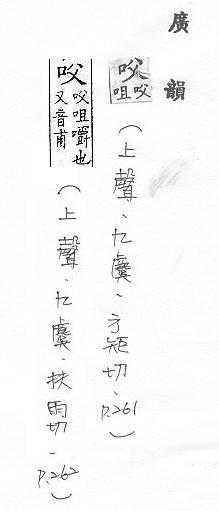 廣韻
㕮 㕮咀 （上聲、九麌、方矩切、p.261）
㕮 㕮咀嚼也又音甫 （上聲、九麌、扶雨切、p.262）